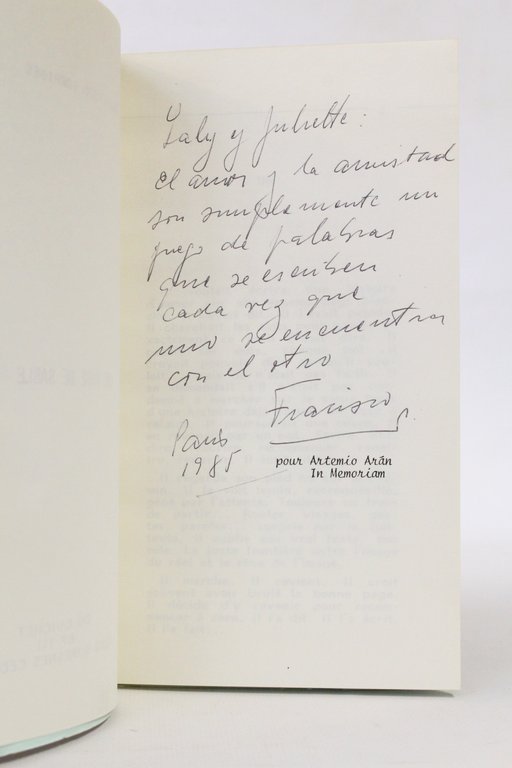 Laly y Juliette:
el amor y la amistad
son simplemente un
juego de palabras
que se escriben
cada vez que
uno se encuentra
con el otro
Francisco
Paris
1985
pour Artemio Arán
In Memoriam